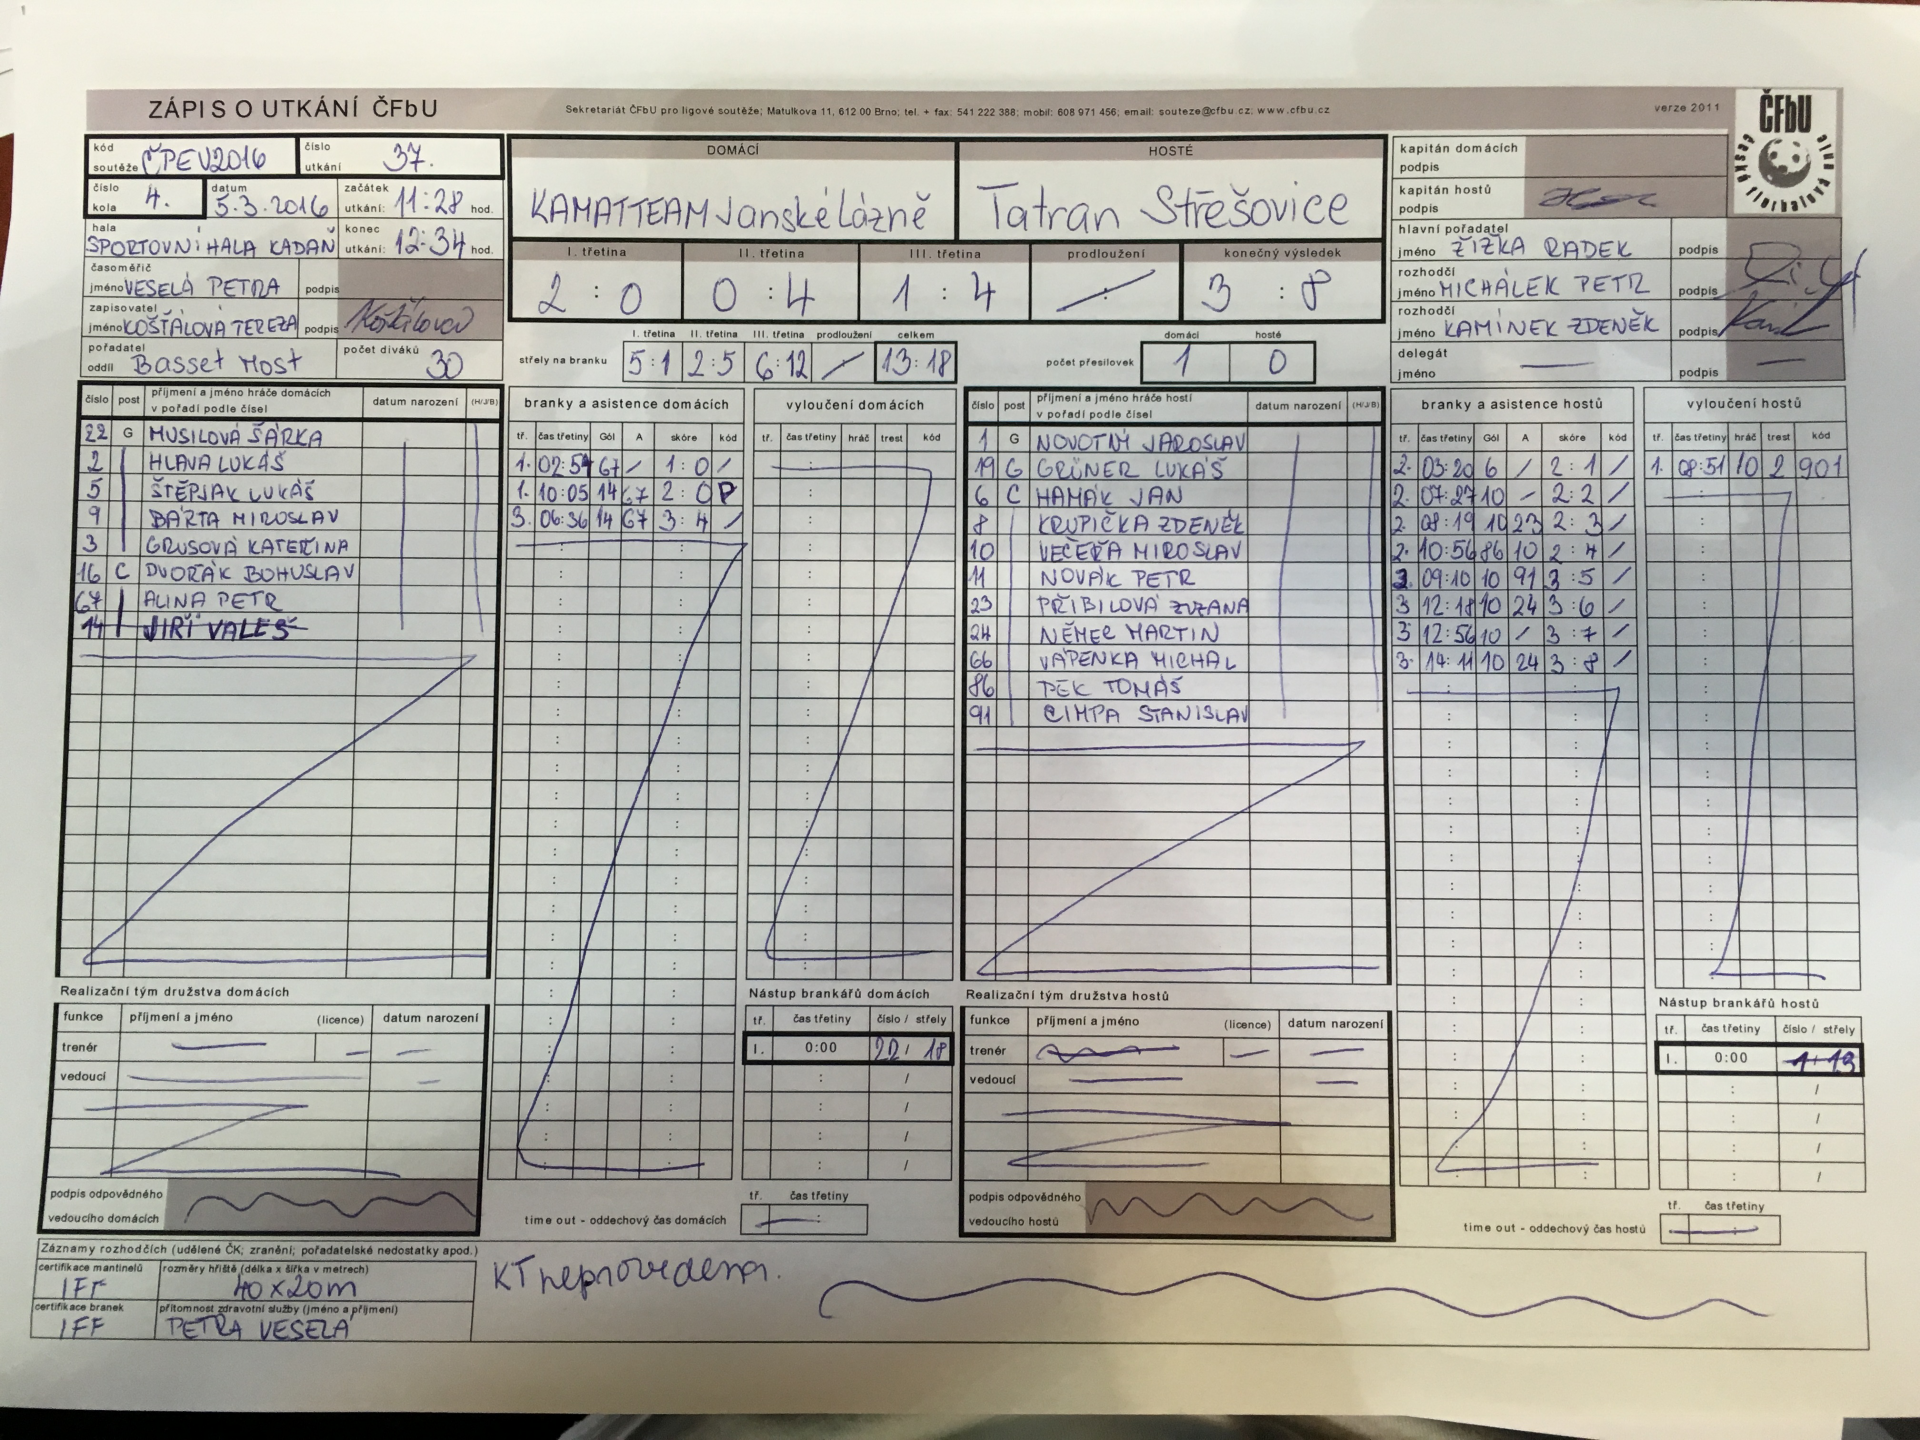 ZÁPIS O UTKÁNÍ ČFbU
Sekretariát ČFbU pro ligové soutěže; Matulkova 11, 612 00 Brno; tel. + fax: 541 222 388; mobil: 608 971 456; email: souteze@cfbu.cz; www.cfbu.cz
verze 2011
ČFbU
česká florbalová unie
kód soutěže ČPEV2016
číslo utkání 37.
číslo kola 4.
datum 5.3.2016
začátek utkání: 11:28 hod.
hala SPORTOVNÍ HALA KADAŇ
konec utkání: 12:34 hod.
časoměřič
jméno VESELÁ PETRA podpis
zapisovatel
jméno KOŠŤÁLOVÁ TEREZA podpis
pořadatel
oddíl Basset Most
počet diváků 30
DOMÁCÍ
KAMATTEAM Janské Lázně
HOSTÉ
Tatran Střešovice
I. třetina II. třetina III. třetina prodloužení konečný výsledek
2 : 0 0 : 4 1 : 4 : 3 : 8
I. třetina II. třetina III. třetina prodloužení celkem
střely na branku 5:1 2:5 6:12 / 13:18
domácí hosté
počet přesilovek 1 0
kapitán domácích
podpis
kapitán hostů
podpis
hlavní pořadatel
jméno ŽIŽKA RADEK podpis
rozhodčí
jméno MICHÁLEK PETR podpis
rozhodčí
jméno KAMÍNEK ZDENĚK podpis
delegát
jméno — podpis —
číslo post příjmení a jméno hráče domácích v pořadí podle čísel datum narození (H/J/B)
22 G MUSILOVÁ ŠÁRKA
2 HLAVA LUKÁŠ
5 ŠTĚPJAK LUKÁŠ
9 BÁRTA MIROSLAV
3 GRUSOVÁ KATEŘINA
16 C DVOŘÁK BOHUSLAV
67 ALINA PETR
14 JIŘÍ VALEŠ
branky a asistence domácích
tř. čas třetiny Gól A skóre kód
1. 02:54 67 / 1:0 /
1. 10:05 14 67 2:0 P
3. 06:36 14 67 3:4 /
vyloučení domácích
tř. čas třetiny hráč trest kód
číslo post příjmení a jméno hráče hostí v pořadí podle čísel datum narození (H/J/B)
1 G NOVOTNÝ JAROSLAV
19 G GRÜNER LUKÁŠ
6 C HAMÁK JAN
8 KRUPIČKA ZDENĚK
10 VEČEŘA MIROSLAV
11 NOVÁK PETR
23 PŘIBILOVÁ ZUZANA
24 NĚMEC MARTIN
66 VÁPENKA MICHAL
86 PEK TOMÁŠ
91 CIMPA STANISLAV
branky a asistence hostů
tř. čas třetiny Gól A skóre kód
2. 03:20 6 / 2:1 /
2. 07:27 10 - 2:2 /
2. 08:19 10 23 2:3 /
2. 10:56 86 10 2:4 /
3. 09:10 10 91 3:5 /
3 12:18 10 24 3:6 /
3 12:56 10 / 3:7 /
3. 14:11 10 24 3:8 /
vyloučení hostů
tř. čas třetiny hráč trest kód
1. 08:51 10 2 901
Realizační tým družstva domácích
funkce příjmení a jméno (licence) datum narození
trenér
vedoucí
podpis odpovědného
vedoucího domácích
Nástup brankářů domácích
tř. čas třetiny číslo / střely
I. 0:00 22 / 18
tř. čas třetiny
time out - oddechový čas domácích
Realizační tým družstva hostů
funkce příjmení a jméno (licence) datum narození
trenér
vedoucí
podpis odpovědného
vedoucího hostů
Nástup brankářů hostů
tř. čas třetiny číslo / střely
I. 0:00 1 / 13
tř. čas třetiny
time out - oddechový čas hostů
Záznamy rozhodčích (udělené ČK; zranění; pořadatelské nedostatky apod.)
certifikace mantinelů IFF
rozměry hřiště (délka x šířka v metrech) 40x20m
certifikace branek IFF
přítomnost zdravotní služby (jméno a příjmení) PETRA VESELÁ
KT neprovedena.